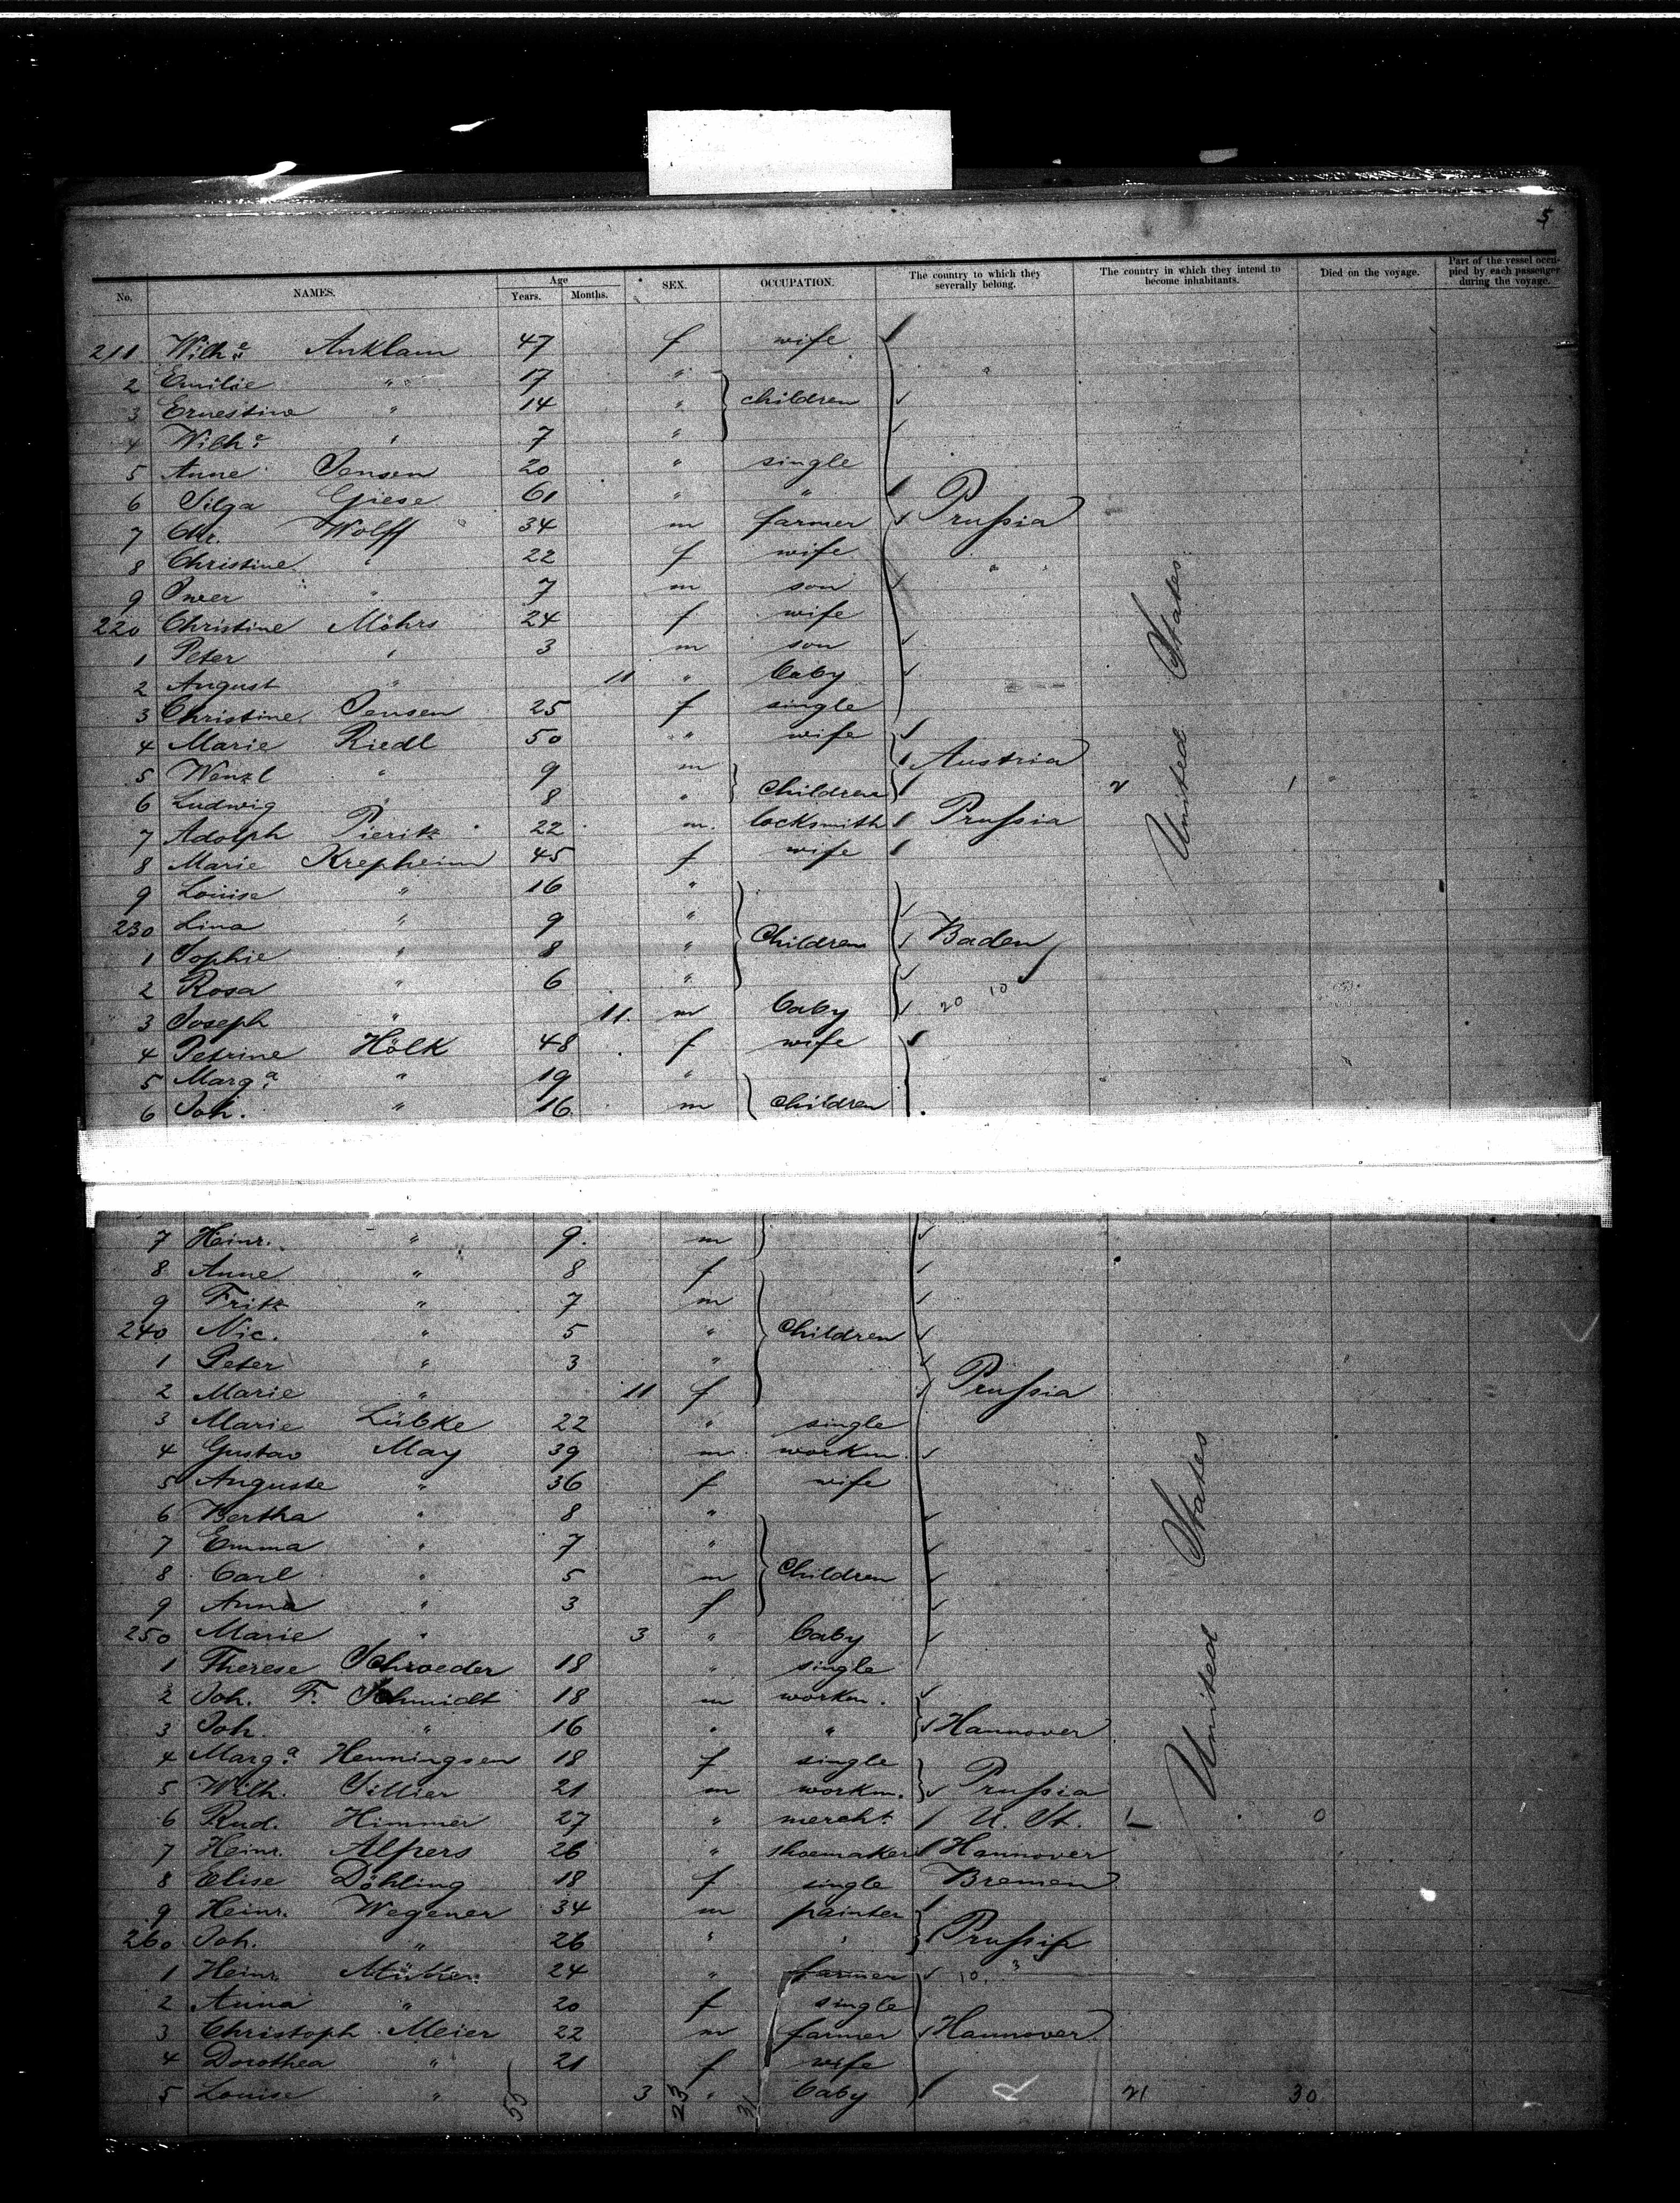 5
No. NAMES. Age Years. Months. SEX. OCCUPATION. The country to which they severally belong. The country in which they intend to become inhabitants. Died on the voyage. Part of the vessel occupied by each passenger during the voyage.
211 Wilh.e Anklam 47 f wife
2 Emilie " 17 "
3 Ernestine " 14 " children
4 Wilh.e " 7 "
5 Anne Jensen 20 " single
6 Silga Giese 61 " "
7 Chr. Wolff 34 m farmer Prussia
8 Christine " 22 f wife
9 Iwer " 7 m son
220 Christine Möhrs 24 f wife
1 Peter " 3 m son
2 August " 11 " baby
3 Christine Jensen 25 f single
4 Marie Riedl 50 " wife
5 Wenzl " 9 m Austria
6 Ludwig " 8 " Children
7 Adolph Pieritz 22 m. locksmith Prussia
8 Marie Krepheim 45 f wife
9 Louise " 16 "
230 Lina " 9 "
1 Sophie " 8 " Children Baden
2 Rosa " 6 "
3 Joseph " 11 m baby 20 10
4 Petrine Hölk 48 f wife
5 Marg.a " 19 "
6 Joh. " 16 m children
United States
7 Heinr. " 9 m
8 Anne " 8 f
9 Fritz " 7 m
240 Nic. " 5 " Children
1 Peter " 3 "
2 Marie " 11 f Prussia
3 Marie Lübke 22 " single
4 Gustav May 39 m workm.
5 Auguste " 36 f wife
6 Bertha " 8 "
7 Emma " 7 "
8 Carl " 5 m Children
9 Anna " 3 f
250 Marie " 3 " baby
1 Therese Schroeder 18 " single
2 Joh. F. Schmidt 18 m workm.
3 Joh. " 16 " " Hannover
4 Marg.a Henningsen 18 f single
5 Wilh. Sillier 21 m workm. Prussia
6 Rud. Himmer 27 " mercht. U. St. 1 0
7 Heinr. Alpers 26 " shoemaker Hannover
8 Elise Döhling 18 f single Bremen
9 Heinr. Wegener 34 m painter
260 Joh. " 26 " " Prussia
1 Heinr. 24 " farmer 10
2 Anna " 20 f single
3 Christoph Meier 22 m farmer Hannover
4 Dorothea " 21 f wife
5 Louise " 3 " baby R 21 30
55 23 31
United States